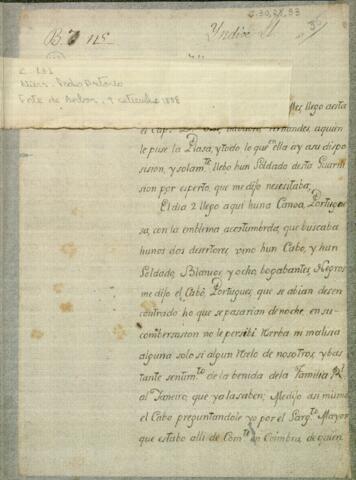 B. 7 nº 5
Yndice
E-30,28,83
Mier, Pedro Antonio
Fote de Borbon, 9 setiembre 1808
Mes llego aesta
el Cap.
Hernandes, aquien
le puse la Plasa, y todo lo que en ella ay asu dispo
sision, y solam.te llebo hun Soldado desta Guarni
sion por esperto, que me dijo nesesitaba.
El dia 2 llego aqui huna Canoa, Portugue
sa, con la emblema acostumbrda, que buscaba
hunos dos desertores, vino hun Cabo, y hun
Soldado, Blancos, y ocho bogabantes, Negros
me dijo el Cabo, Portugues, que se abian desen
contrado ho que se pasarian de noche, en su
combersasion no le persibi yerba ni malisia
alguna solo si algun Reelo de nosotros, y bas
tante sentim.to de la benida de la Familia Rl.
al Janeiro, que ya la saben; Medijo asi mismo
el Cabo preguntandole yo por el Sarg.to Mayor
que estabo alli de Com.te en Coimbra, de quien